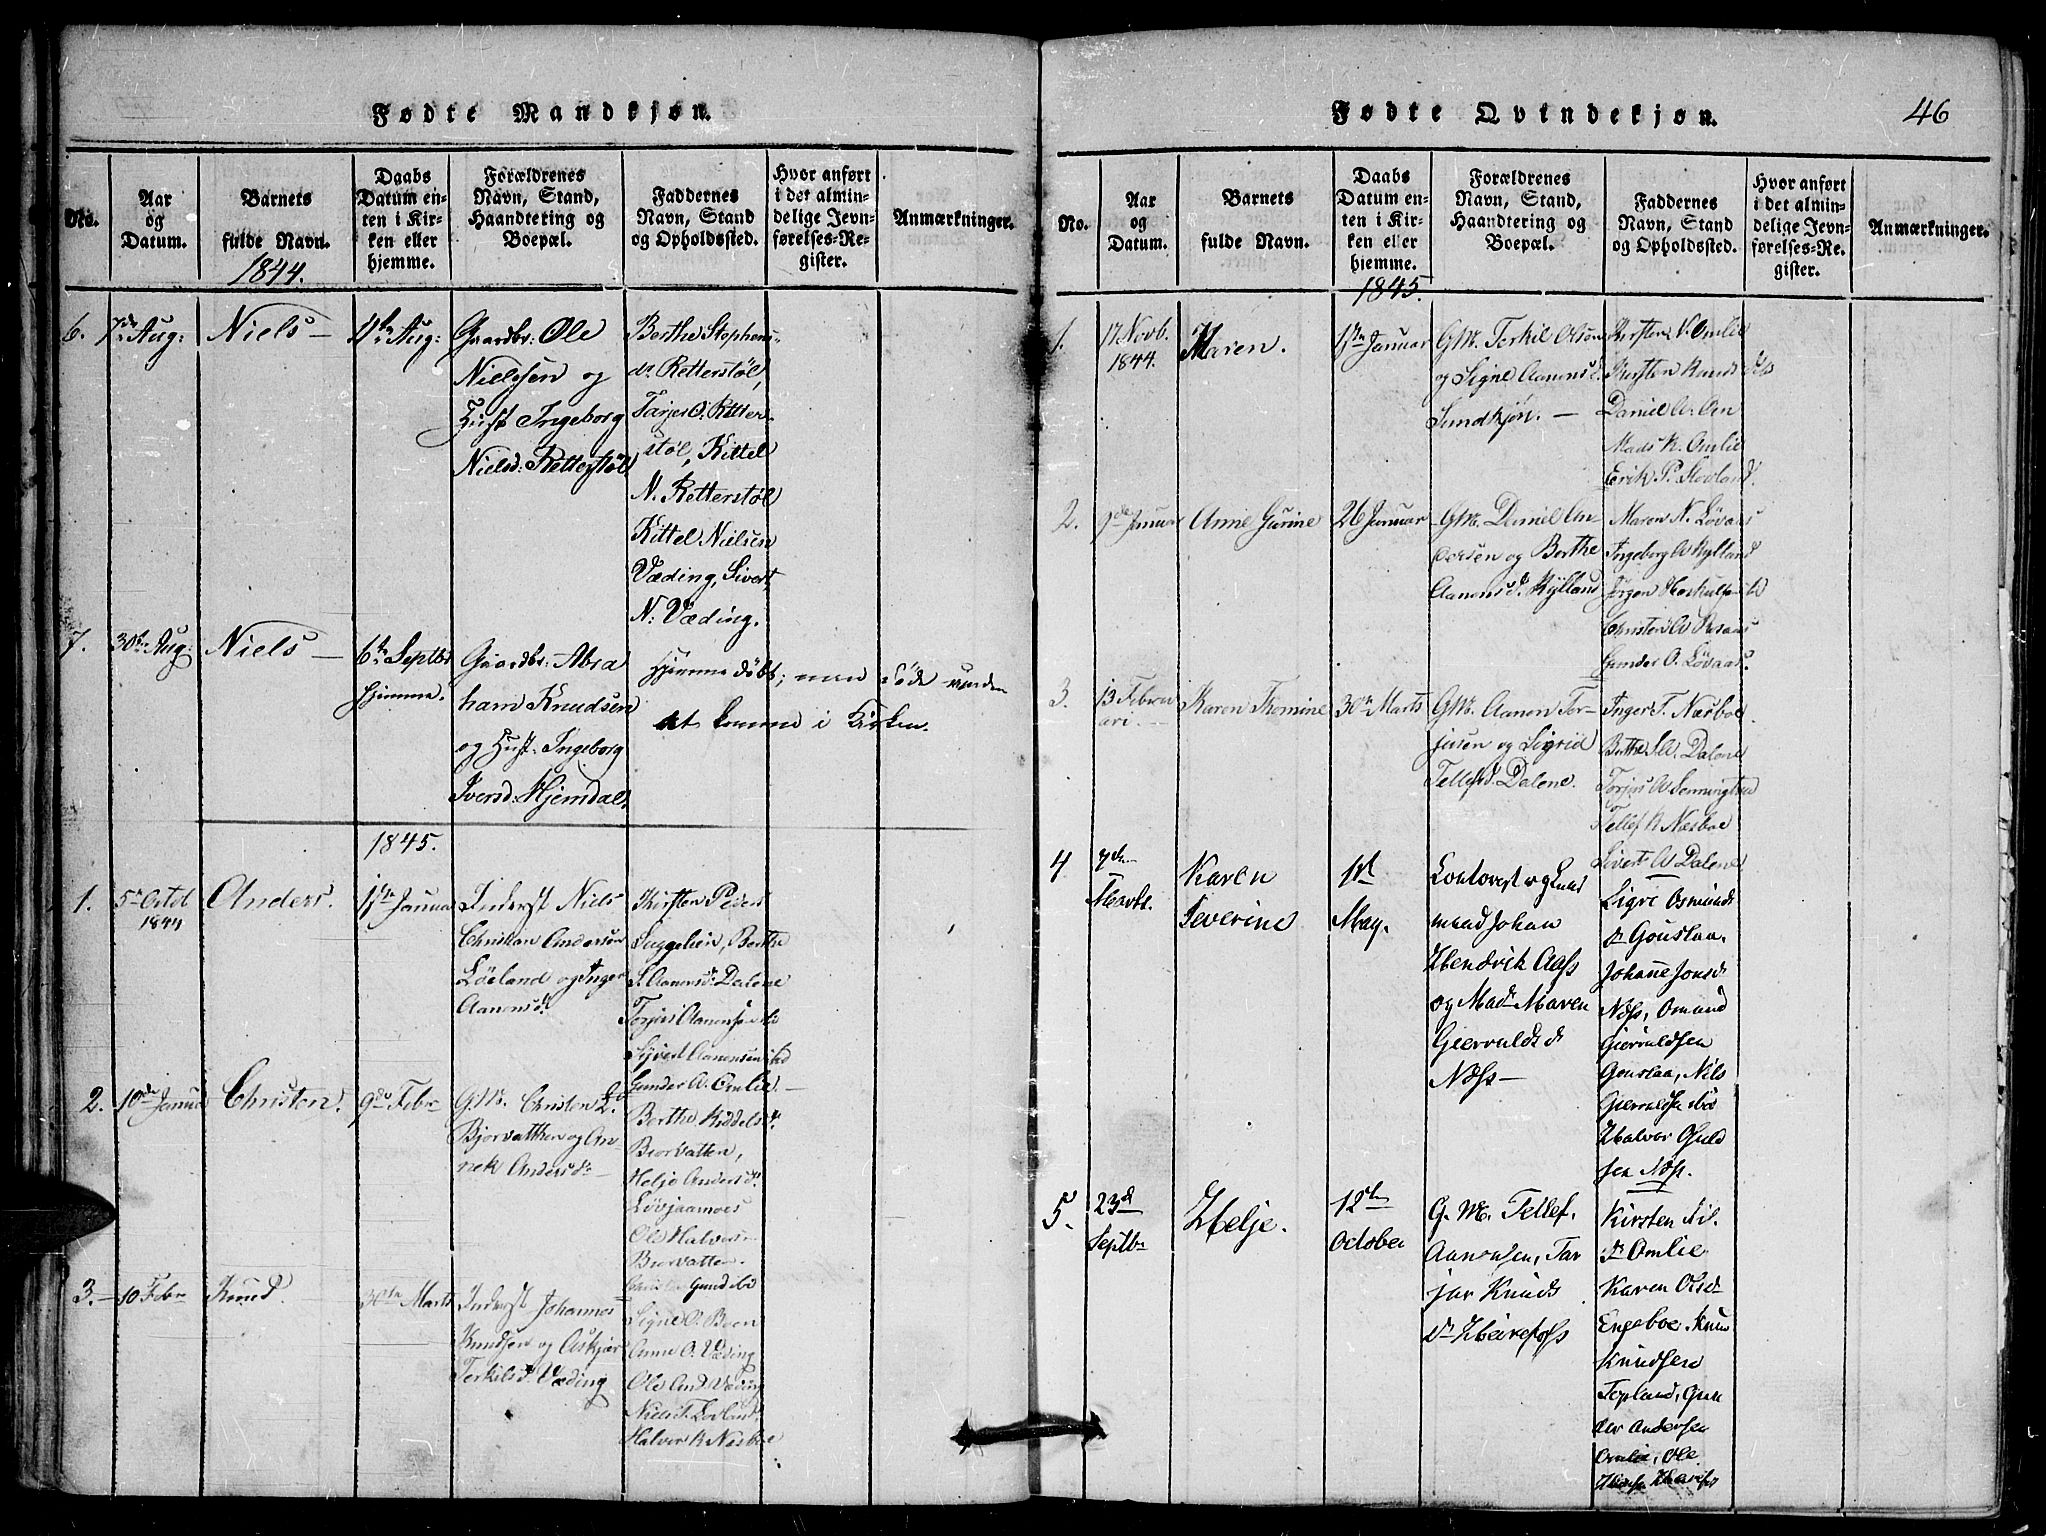 Fødte Mandkjøn.
No.
Aar
og
Datum.
Barnets
fulde Navn.
Daabs
Datum en-
ten i Kir-
ken eller
hjemme.
Forældrenes
Navn, Stand,
Haandtering og
Boepæl.
Faddernes
Navn, Stand
og Opholdssted.
Hvor anført
i det almin-
delige Jevn-
førelses-Re-
gister.
Anmærkninger.
1844.
6.
7de Aug:
Niels
Aug:
Gaardbr: Ole
Nielssen og
Hust Ingeborg
Nielsd: Retterstøl
Berthe Stephens-
dr Retterstøl,
Tarjer O. Retter-
støl, Kittel
N. Retterstøl
Kittel Nielsen
Væding, Sivert
N: Væding.
7.
30te Aug:
Niels
6te Septbr
hjemme.
Gaardbr: Abra
ham Knudsen
og Hust: Ingeborg
Iversd: Hjemdal
Hjemmedøbt; men døde uden
at komme i Kirken.
1845.
1.
5te Octob
1844
Anders.
Januar
Inderst Niels
Christian Andersen
Løeland og Inger
Aanensdr
Kirsten Peders
Suggelien, Berthe
S. Aanensdr Dalene
Torjus Aanensen
Sijvert Aanensen ibd
Gunder A. Omlie
2.
10de Januar
Christen.
9de Febr
GM. Christen
Bjorvatten og An-
nek Andersdr
Berthe Kiddelsdr
Biorvatten,
Helje Andersdr
Løvjaamoes
Ole Halvors
Biorvatten.
3.
10 Febr
Knud
30te Marts
Inderst Johannes
Knudsen og Askjær
Terkilsd. Væding
Signe O. Boen
Anne O. Væding
Ole And. Væding
Niels T. Lovland
Halvor K Næsboe
Fødte Qvindekjøn.
46
No.
Aar
og
Datum.
Barnets
fulde Navn.
Daabs
Datum en-
ten i Kir-
ken eller
hjemme.
Forældrenes
Navn, Stand,
Haandtering og
Boepæl.
Faddernes
Navn, Stand
og Opholdssted.
Hvor anført
i det almin-
delige Jevn-
førelses-Re-
gister.
Anmærkninger.
1845.
1.
17 Novb.
1844.
Maren.
Januar
GM. Terkil Olsen
og Signe Aanensd.
Sundkjøn.
Kirsten N. Omlie
Kirsten Knuds
Daniel A. Oen
Mads K. Omlie
Erik P. Stovland.
2.
Januar
Anne Gurine
26 Januar
GM. Daniel An-
dersen og Berthe
Aanensd. Rylland
Maren N. Løvaas
Ingeborg A Rylland
Jørgen
Christen A
Gunder O. Løvaas
3.
13 Febru
ari.
Karen Thomine
30te Marts
GM. Aanon Tor-
jusen og Sigrid
Tellefsd. Dalene.
Inger T. Næsboe.
Berthe S.A. Dalene
Torjus A
Tellef K Næsboe
Sivert A Dalene
4
7de
Karen
Severine
1st
May.
mand Johan
Hendrik Aass
og Madm Maren
Giervaldsd
Næss
Sigri Osmunds
dr Gouslaa.
Johanne Jonsd
Næss, Omund
Giervaldsen
Gouslaa, Nils
Giervaldsen ibd
Halvor
sen Næss.
5.
23d
Septbr
Helje.
12te
October
G. M. Tellef.
Aanonsen, Tar
jar Knuds
dr Heirefoss
Kirsten Nil
dr Omlie
Karen Olsd
Engeboe Knud
Knudsen
Topland, Gun
der Andersen
Omlie, Ole